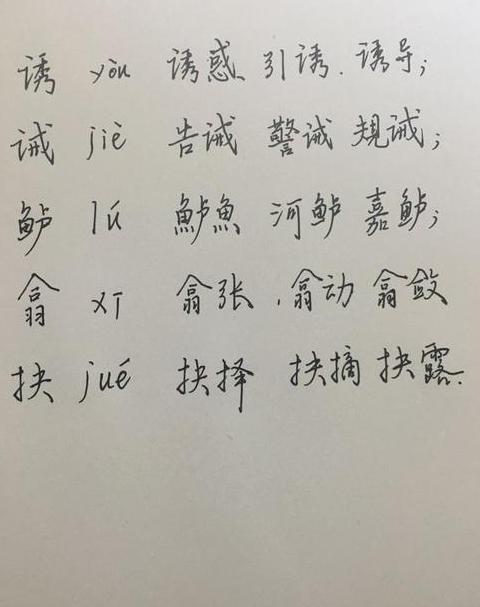 诱 yòu 诱惑 引诱. 诱导;
诫 jiè 告诫 警诫 規诫;
鲈 lú 鲈魚 河鲈 嘉鲈;
翕 xī 翕张, 翕动 翕敛
抉 jué 抉择 抉摘 抉露.